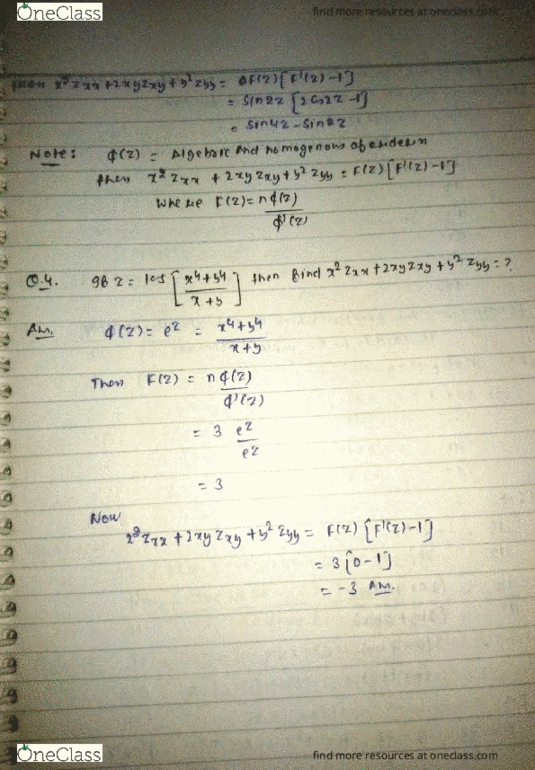 OneClass
find more resources at oneclass.com
then x² Zxx + 2xy Zxy + y² Zyy = F(z) [F'(z) - 1]
= Sin2z [2Cos2z - 1]
= Sin4z - Sin2z
Note: φ(z) = Algebraic and homogenous of order n
then x² Zxx + 2xy Zxy + y² Zyy = F(z) [F'(z) - 1]
Where F(z) = n φ(z) / φ'(z)
Q.4. If z = log [ x⁴ + y⁴ / x + y ] then find x² Zxx + 2xy Zxy + y² Zyy = ?
Ans. φ(z) = e^z = x⁴ + y⁴ / x + y
Then F(z) = n φ(z) / φ'(z)
= 3 e^z / e^z
= 3
Now
x² Zxx + 2xy Zxy + y² Zyy = F(z) [F'(z) - 1]
= 3 [0 - 1]
= -3 Ans.
OneClass
find more resources at oneclass.com